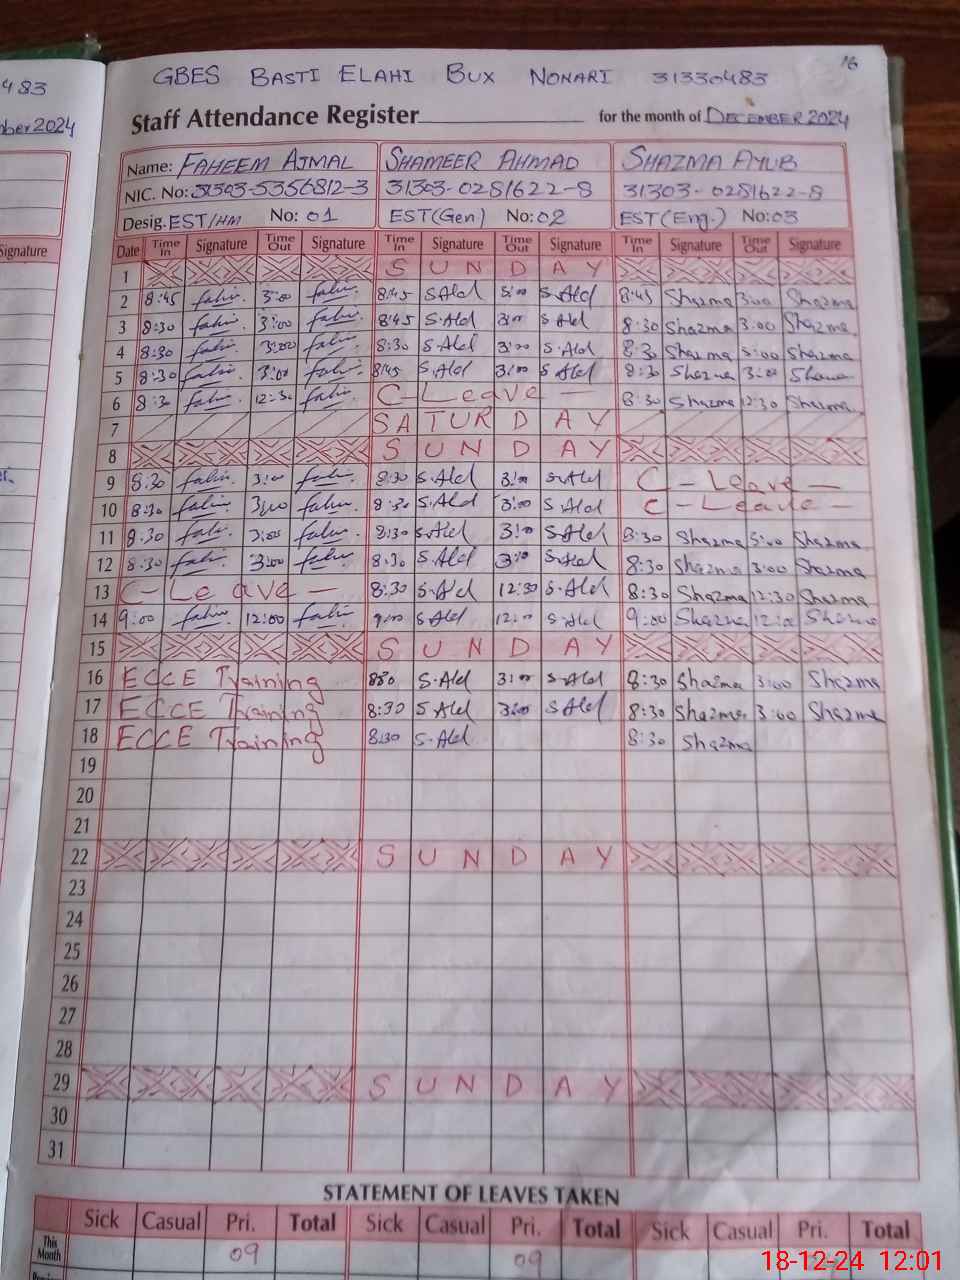 16
GBES BASTI ELAHI BUX NONARI 31330483
483
Staff Attendance Register for the month of DECEMBER 2024
ber 2024
Name: FAHEEM AJMAL SHAMEER AHMAD SHAZMA AYUB
NIC. No: 31303-5356812-3 31303-0281622-8 31303-0281622-8
Desig. EST/HM No: 01 EST(Gen) No: 02 EST(Eng.) No: 03
Signature Date Time In Signature Time Out Signature Time In Signature Time Out Signature Time In Signature Time Out Signature
1 SUNDAY
2 8:45 3:00 8:45 S.Ald 3:00 S.Ald 8:45 Shazma 3:00 Shazma
3 8:30 3:00 8:45 S.Ald 3:00 S.Ald 8:30 Shazma 3:00 Shazma
4 8:30 3:00 8:30 S.Ald 3:00 S.Ald 8:30 Shazma 3:00 Shazma
5 8:30 3:00 8:45 S.Ald 3:00 S.Ald 8:30 Shazma 3:00
6 8:30 12:30 C-Leave - 8:30 Shazma 12:30 Shazma
7 SATURDAY
8 SUNDAY
9 8:30 3:00 8:30 S.Ald 3:00 S.Ald C-Leave -
10 8:30 3:00 8:30 S.Ald 3:00 S.Ald C-Leave -
11 8:30 3:00 8:30 S.Ald 3:00 S.Ald 8:30 Shazma 3:00 Shazma
12 8:30 3:00 8:30 S.Ald 3:00 S.Ald 8:30 Shazma 3:00 Shazma
13 C-Leave - 8:30 S.Ald 12:30 S.Ald 8:30 Shazma 12:30 Shazma
14 9:00 12:00 9:00 S.Ald 12:00 S.Ald 9:00 Shazma 12:00 Shazma
15 SUNDAY
16 ECCE Training 830 S.Ald 3:00 S.Ald 8:30 Shazma 3:00 Shazma
17 ECCE Training 8:30 S.Ald 3:00 S.Ald 8:30 Shazma 3:00 Shazma
18 ECCE Training 8:30 S.Ald 8:30 Shazma
19
20
21
22 SUNDAY
23
24
25
26
27
28
29 SUNDAY
30
31
STATEMENT OF LEAVES TAKEN
Sick Casual Pri. Total Sick Casual Pri. Total Sick Casual Pri. Total
This Month 09 09
18-12-24 12:01